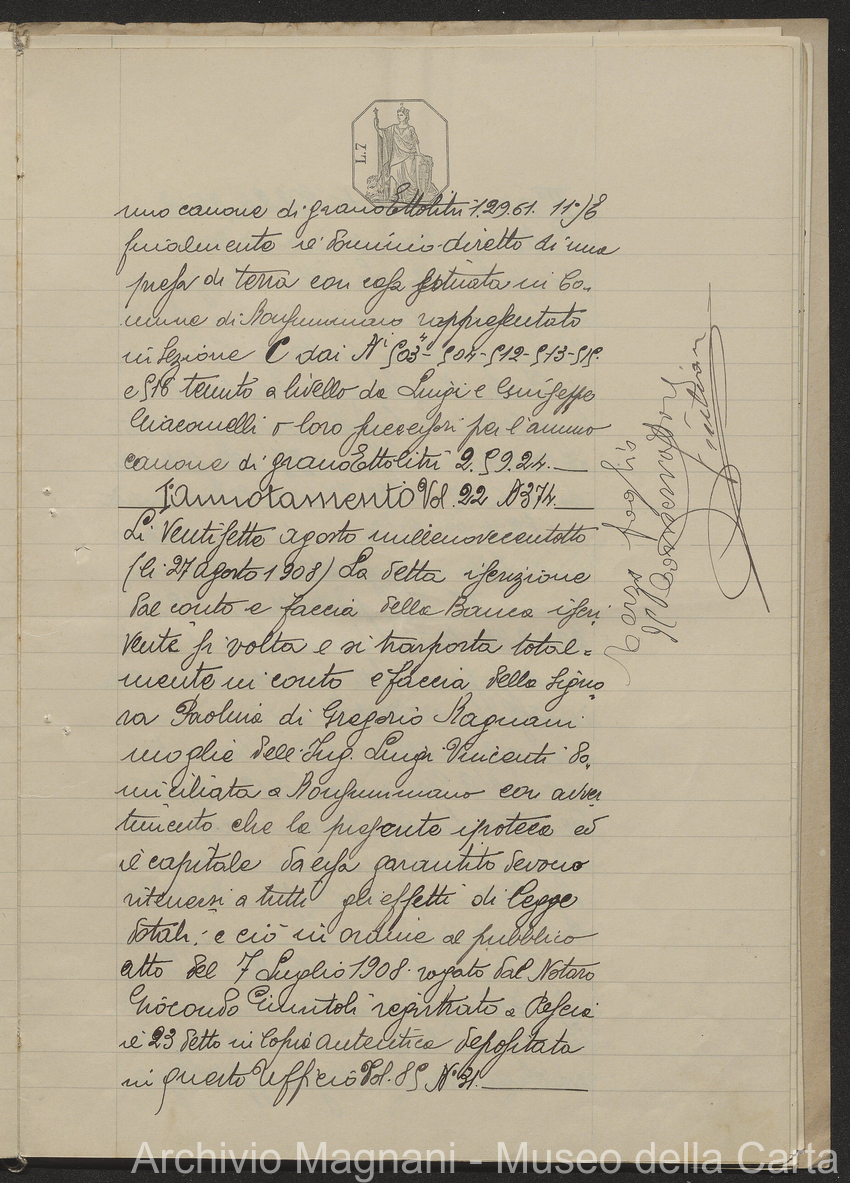 L.7
nuo canone di grano Ettolitri 1.29.61. 11°/E
finalmente il dominio diretto di una
presa di terra con casa situata in Co-
mune di Monsummano rappresentato
in Sezione C dai Ni 503- 504-512-513-515.
e 518 tenuto a livello da Luigi e Giuseppe
Giacomelli o loro successori per l'annuo
canone di grano Ettolitri 2.59.24.
I Annotamento Vol. 22 N 374.
Li Ventisette agosto millenovecentotto
(li 27 agosto 1908) La detta iscrizione
dal conto e faccia della Banca iscri
vente si volta e si trasporta total=
mente in conto e faccia della Signo
ra Paolina di Gregorio Magnani
moglie dell'Ing. Luigi Vincenti do,
miciliata a Monsummano con avver
timento che la presente ipoteca ed
il capitale da essa garantito devono
ritenersi a tutti gli effetti di legge
dotali, e ciò in ordine al pubblico
atto del 7 Luglio 1908 rogato dal Notaro
Giocondo Giuntoli registrato a Pescia
il 23 detto in Copia autentica depositata
in questo Ufficio Vol. 85 N° 31.
Terzo foglio
Archivio Magnani - Museo della Carta